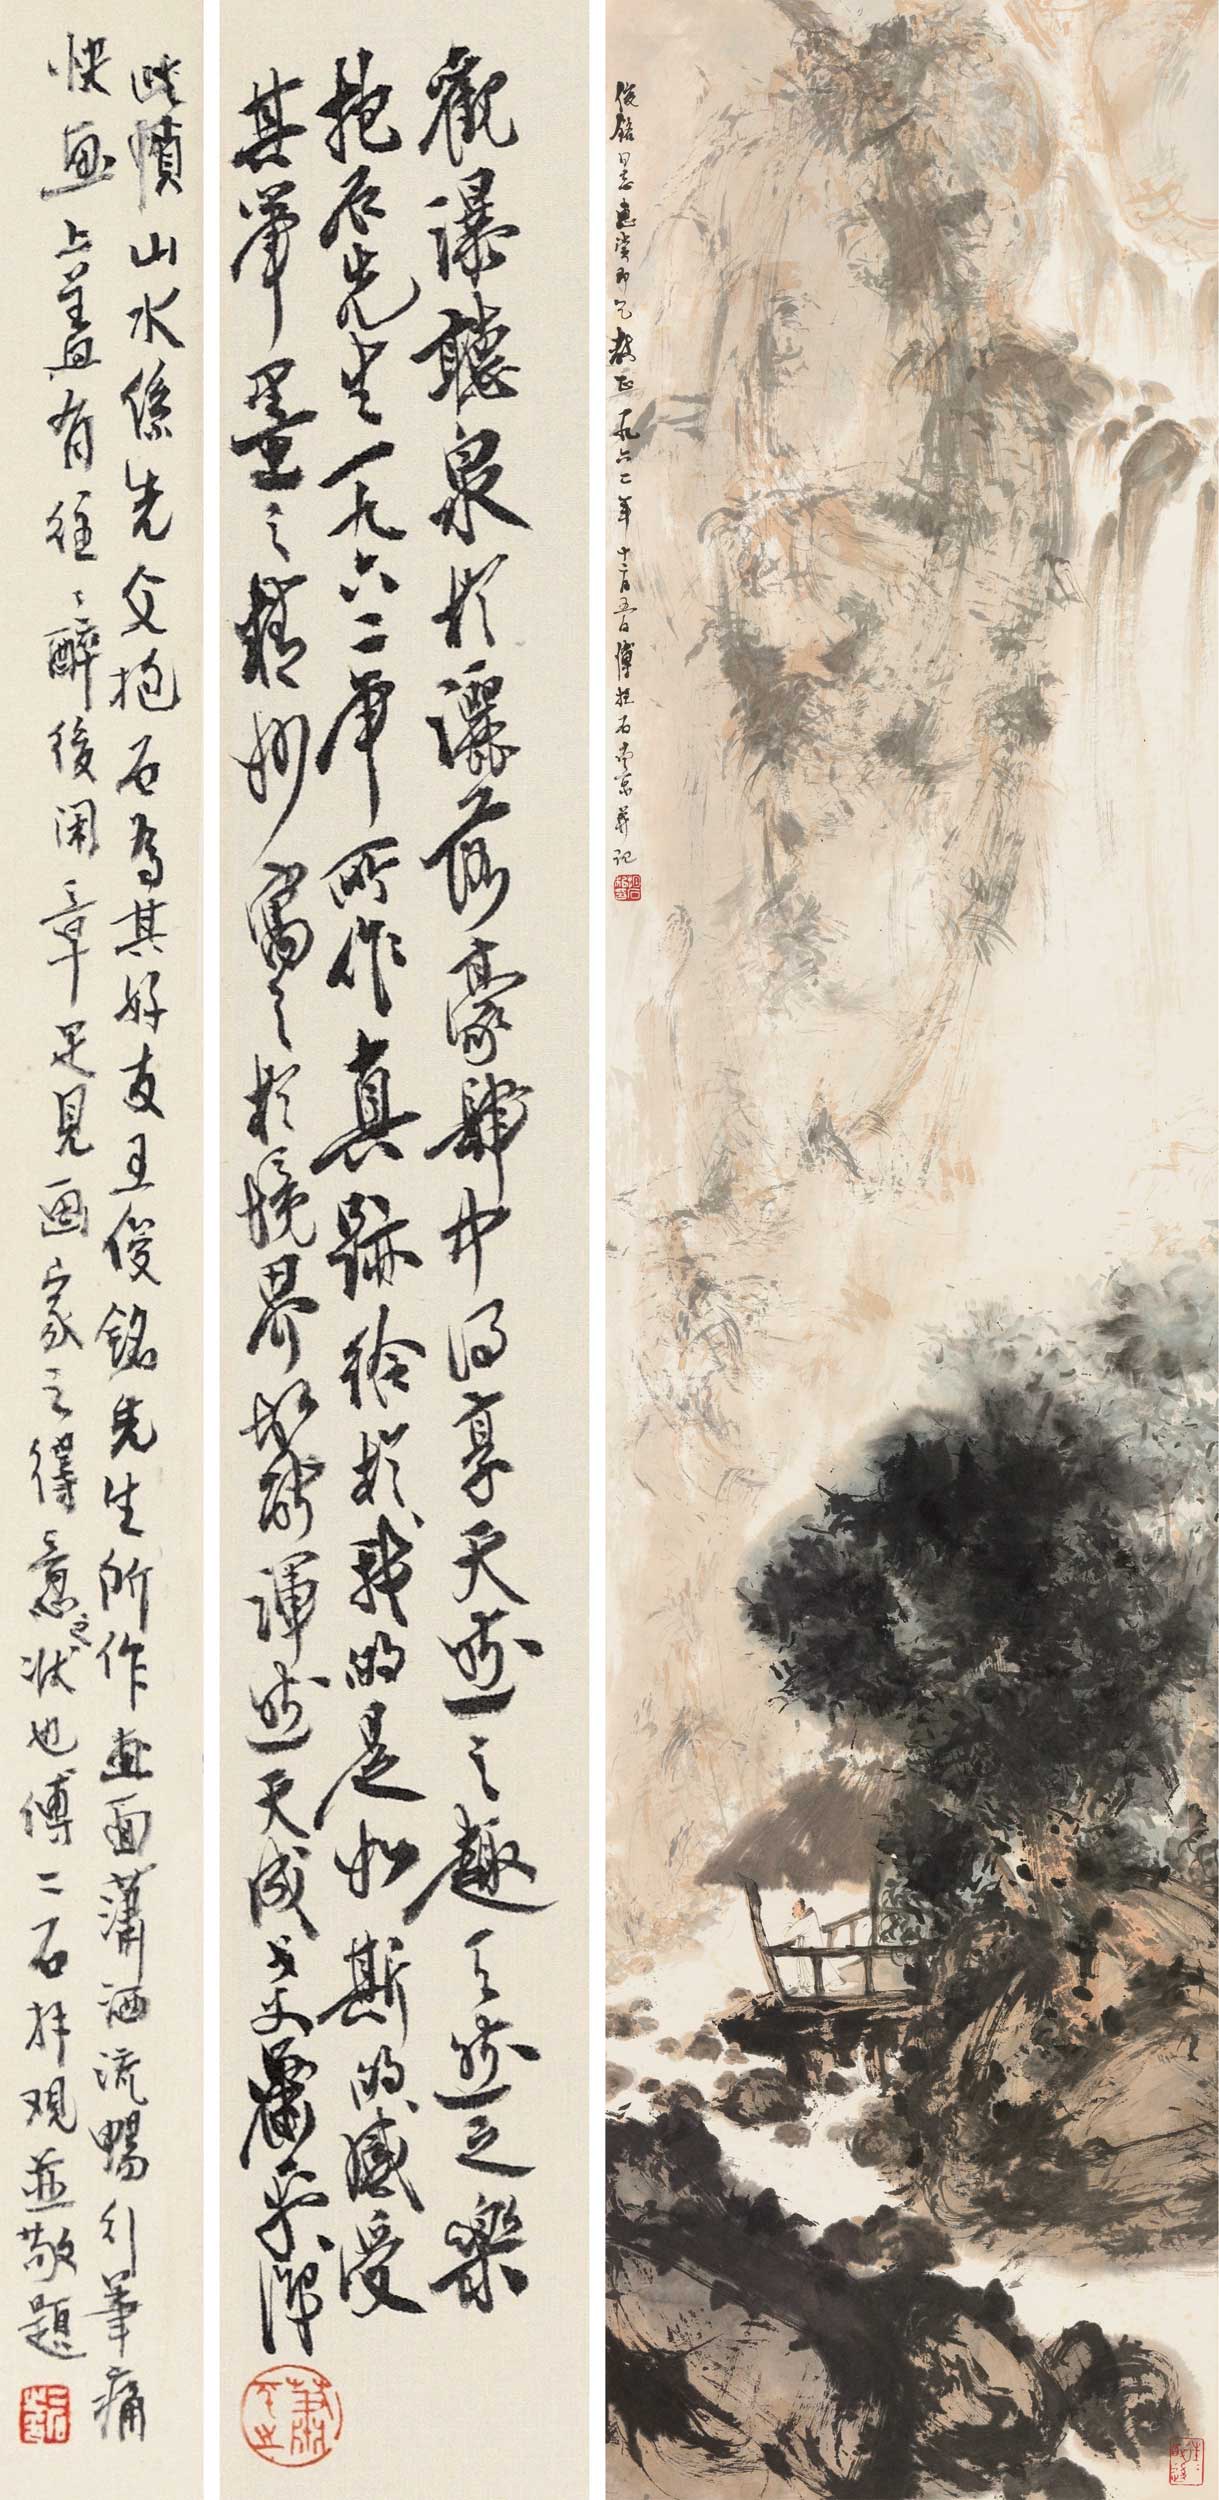 俊銘同志惠賞即乞教正一九六二年十二月五日傅抱石南京並記
觀瀑聽泉於灑落豪肆中得享天然之趣天然之樂
抱石先生一九六二年所作真跡給於我的是如斯的感受
其筆墨之精妙寓之於境界
渾然天成
蕭平
此幀山水係先父抱石為其好友王俊銘先生所作畫面瀟洒流暢行筆痛
快畫上蓋有往往醉後閑章足見画家之得意之状也傅二石拜观並敬題
往往醉後